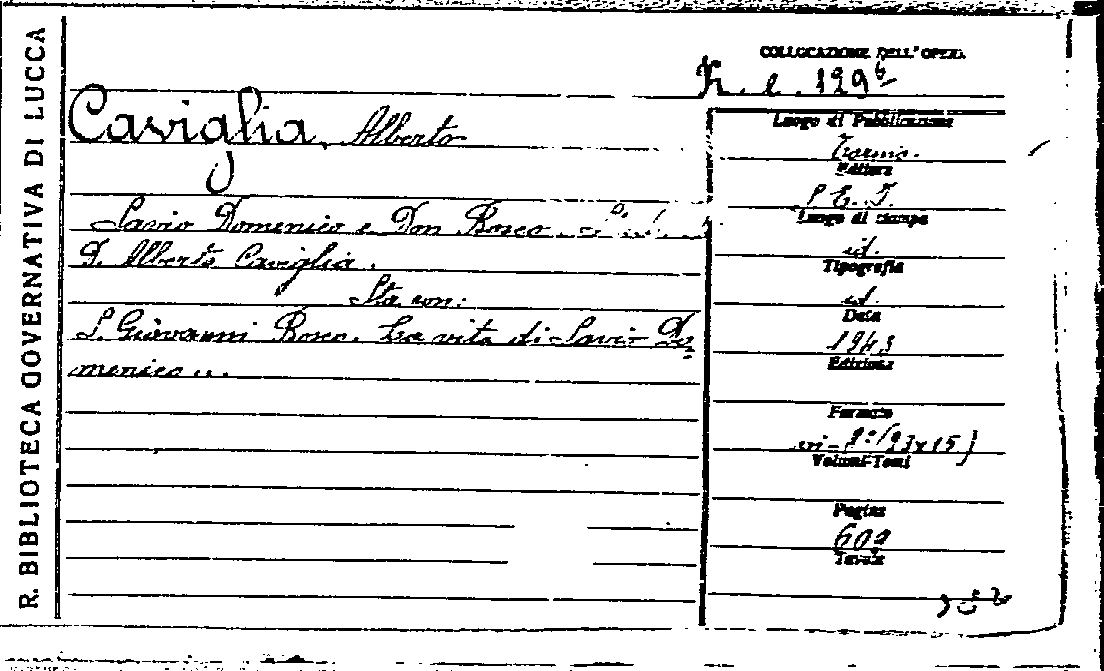 R. BIBLIOTECA GOVERNATIVA DI LUCCA
COLLOCAZIONE DELL'OPERA
Caviglia, Alberto
Savio Domenico e Don Bosco.
D. Alberto Caviglia.
Sta con:
S. Giovanni Bosco. La vita di Savio Do=
menico...
Luogo di Pubblicazione
Torino.
Editore
S. E. I.
Luogo di stampa
id.
Tipografia
id.
Data
1943
Edizione
Formato
(23x15)
Volumi-Tomi
Pagine
609
Tavole